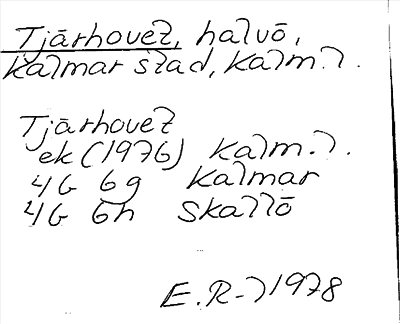 Tjärhovet, halvö,
Kalmar stad, Kalm. l.
Tjärhovet
ek (1976) Kalm. l.
4G 6g Kalmar
4G 6h Skallö
E.R-l 1978